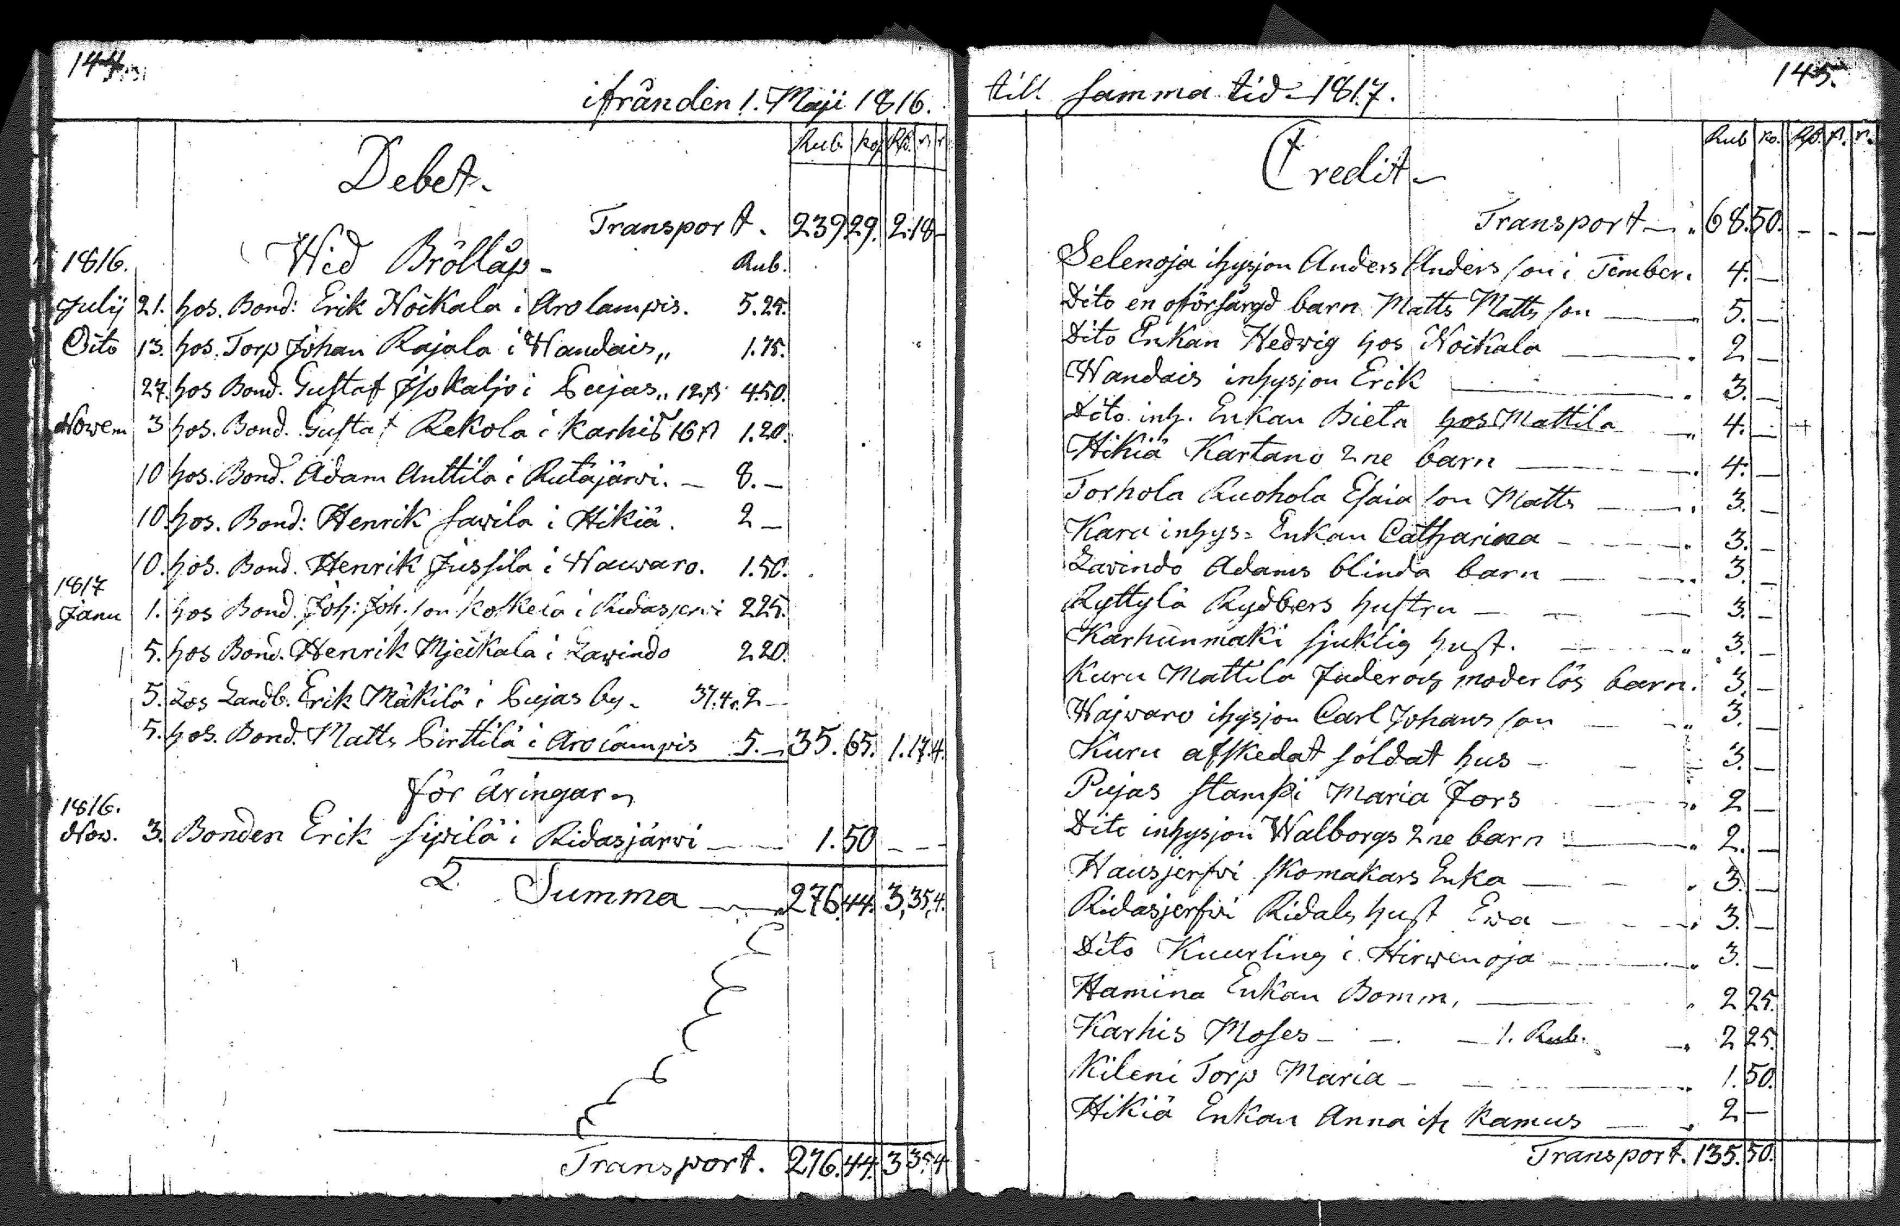 144.
ifrån den 1. Maji 1816.
Rub. Kop R.
Debet.
Transport. 239 29. 2.18 –
1816. Wid Bröllåp – Rub.
Julij 21. hos. Bond: Erik Nockala i Arolampis. 5.25.
Dito 13. hos. Torp Johan Rajala i Wandais„ 1.75.
27. hos Bond. Gustaf Isokaljo i Pujas„ 12 450.
Nowem 3 hos. Bond. Gustaf Rekola i Karhis 16 1.20.
10 hos. Bond. Adam Anttila i Ritajärvi. – 8. –
10. hos. Bond: Henrik Sawila i Hikiä. 2 –
10. hos. Bond. Henrik Jussila i Hauwaro. 1.50.
1817
Janu 1. hos Bond. Joh: Joh. son Koskela i Ridasjerwi 225.
5. hos Bond. Henrik Mjeckala i Lawindo 220.
5. Landb. Erik Mäkilä i Pujas by. 2 –
5. hos. Bond. Matts Pirttilä i Arolampis 5. – 35. 65. 1.17.4.
för äringar
1816.
Now. 3. Bonden Erik Sipilä i Ridasjärvi – 1. 50 – – –
Summa – 276. 44. 3, 35, 4.
Transport. 276. 44. 3 35. 4
145.
till samma tid – 1817.
Rub Ko. R.
Credit –
Transport – „ 68. 50. – – –
Selenoja ihysjon Anders Anders son i Timber. 4. –
Dito en oförsärgd barn Matts Matts son – 5. –
Dito Enkan Hedwig hos Nockala – 2 –
Wandais inhysjon Erik – 3. –
Dito. inh. Enkan Bieta hos Mattila – 4. –
Hikiä Kartano 2ne barn – 4. –
Torhola Ruohola Esaia son Matts – 3. –
Kara inhys= Enkan Catharina – 3. –
Lavindo Adams blinda barn – 3. –
Ryttylä Rydbers hustru – 3. –
Karhunmäki sjuklig hust. – 3. –
Kuru Mattila fader och moder lös barn. 3. –
Hajwaro ihysjon Carl Johans son – 3. –
Kuru afskedat soldat hus – 3. –
Pujas stampi Maria Fors – 2 –
Dito inhysjon Walborgs 2ne barn – 2. –
Hausjerfwi skomakars Enka – 3. –
Ridasjerfwi Ridals hust Ewa – 3. –
Dito Kuurling i Hirwenoja – 3. –
Hamina Enkan Bomm. – 2 25.
Karhis Moses – – – 1. Rub. 2 25.
Kileni Torp Maria – 1. 50.
Hikiä Enkan Anna Kamus – 2 –
Transport. 135. 50.